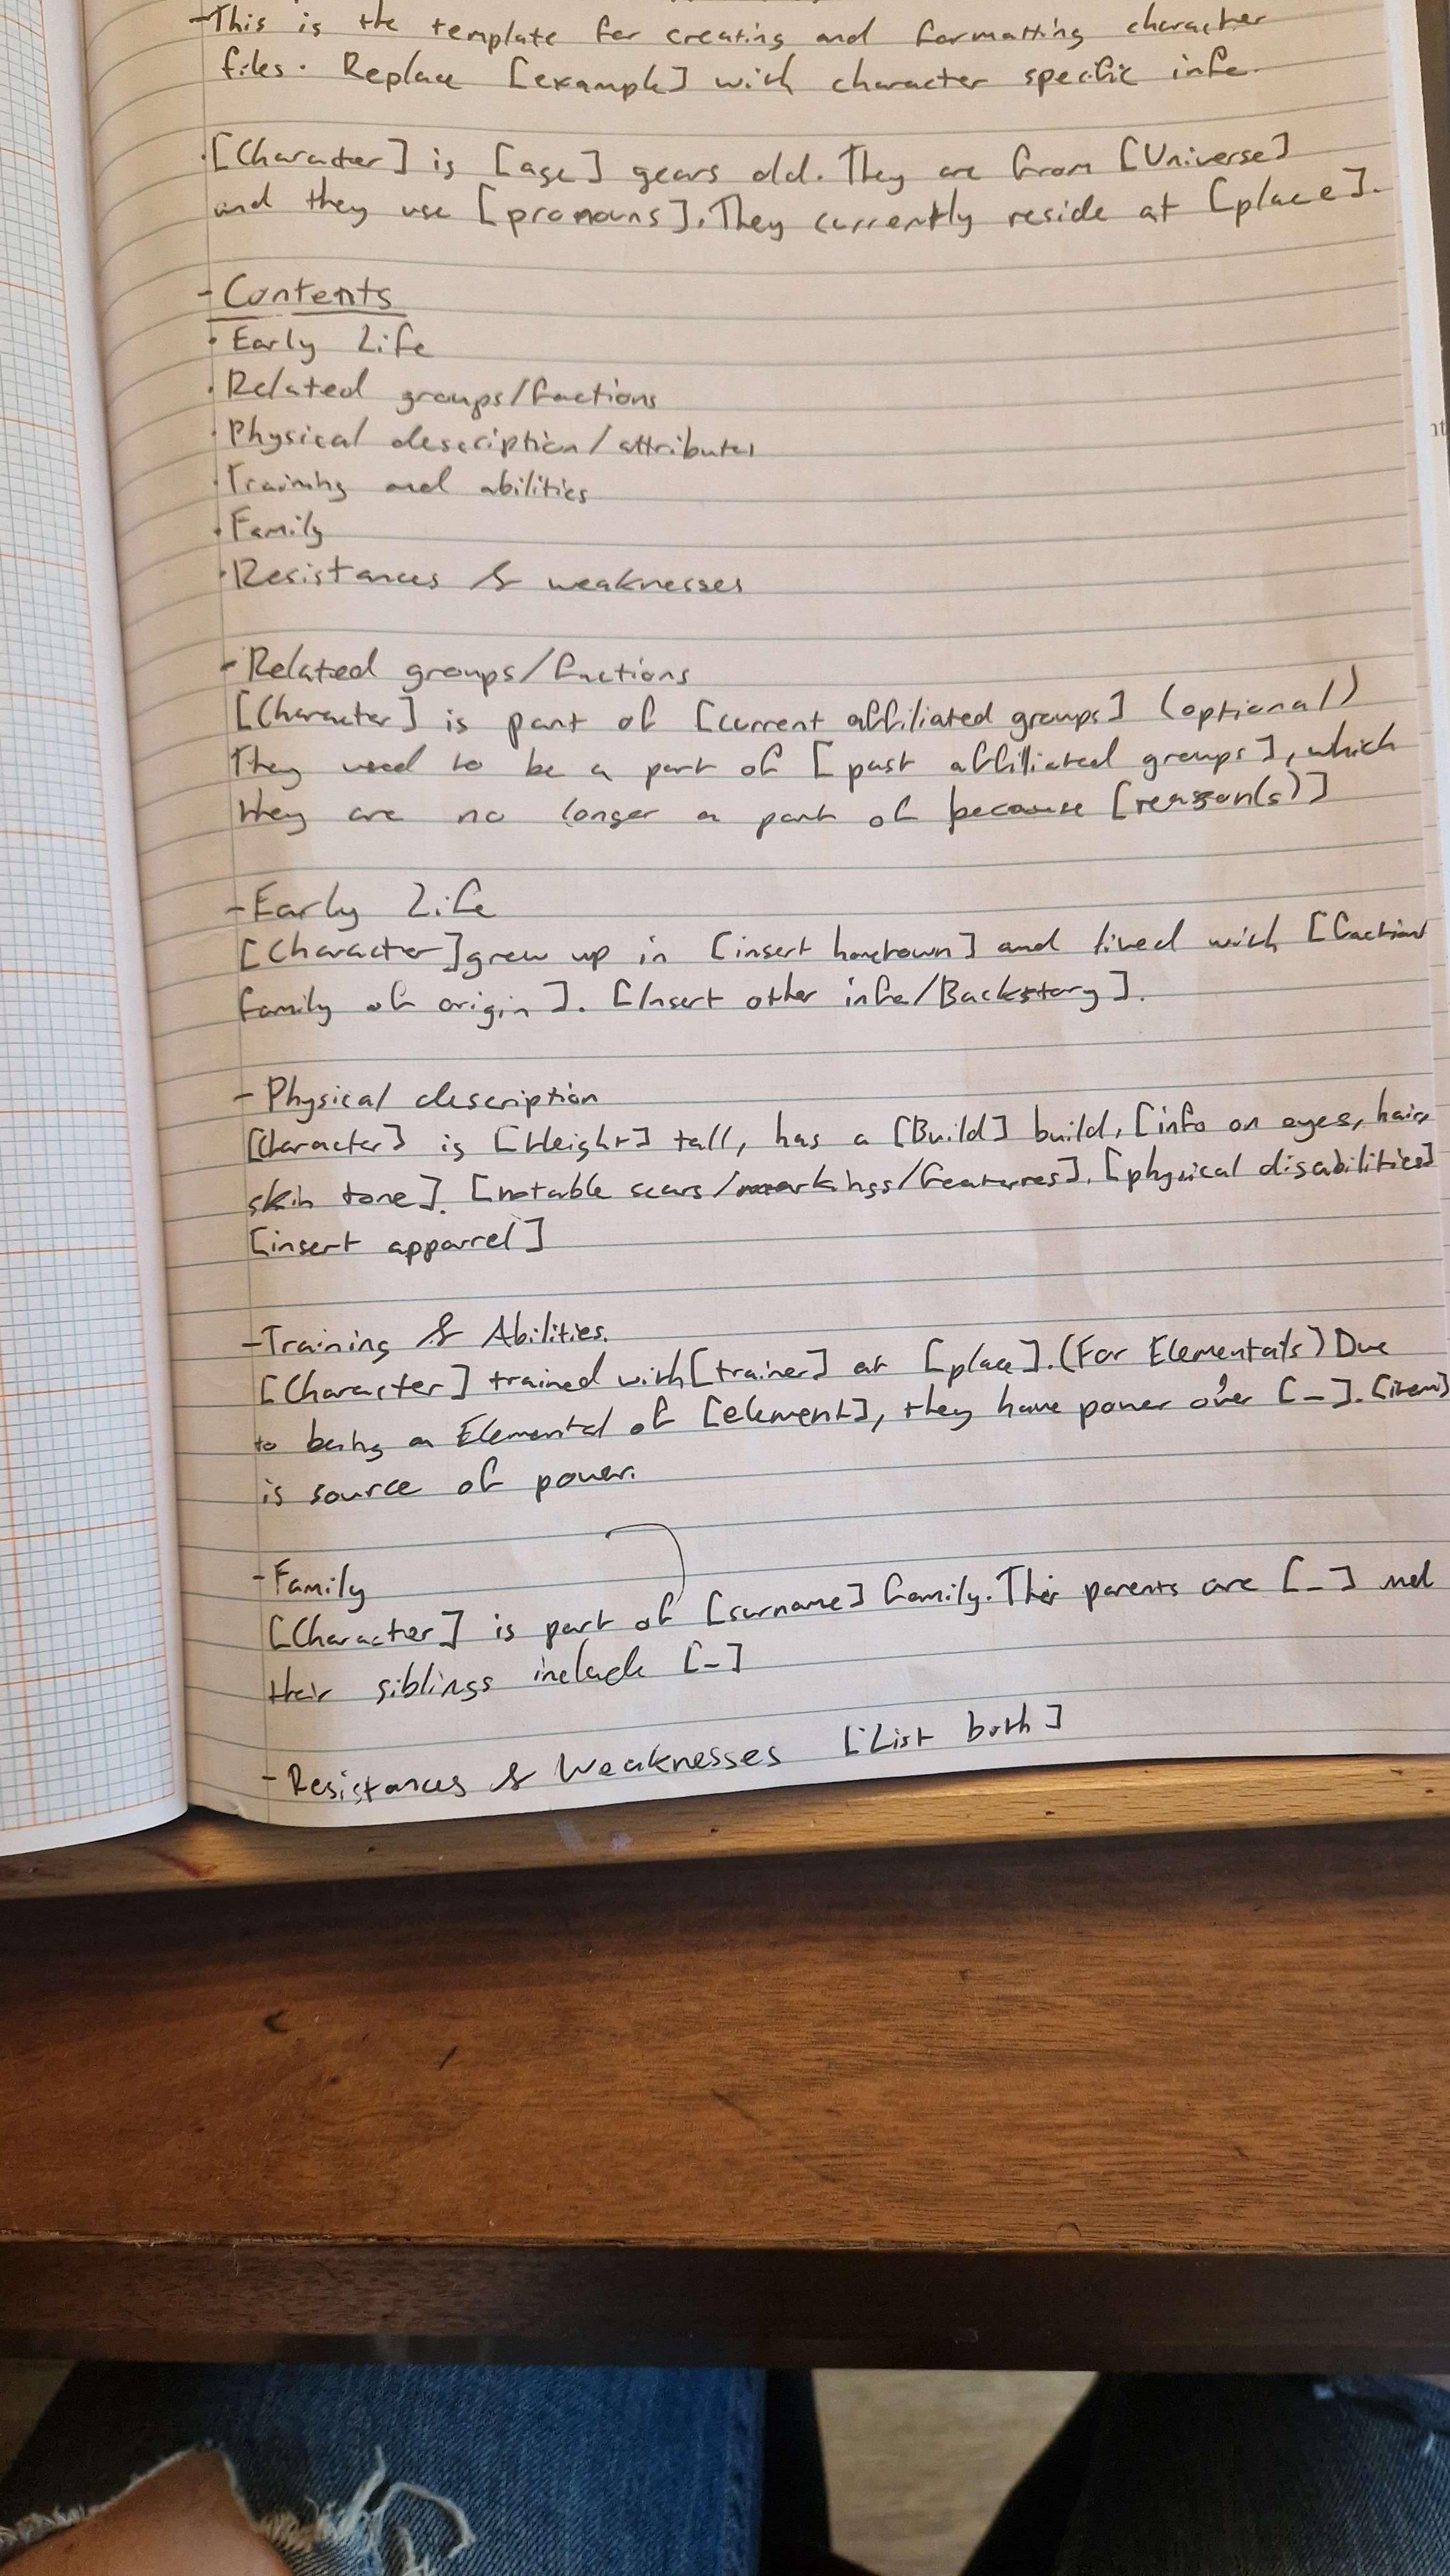 -This is the template for creating and formatting character
files. Replace [example] with character specific info.
·[Character] is [age] years old. They are from [Universe]
and they use [pronouns]. They currently reside at [place].
- Contents
· Early Life
· Related groups/factions
· Physical description/attributes
· Training and abilities
· Family
· Resistances & weaknesses
- Related groups/factions
[Character] is part of [current affiliated groups] (optional)
They used to be a part of [past affiliated groups], which
they are no longer a part of because [reason(s)]
-Early Life
[Character] grew up in [insert hometown] and lived with [faction/
family of origin]. [Insert other info/Backstory].
- Physical description
[Character] is [Height] tall, has a [Build] build, [info on eyes, hair,
skin tone]. [notable scars/markings/features]. [physical disabilities]
[insert apparrel]
-Training & Abilities.
[Character] trained with [trainer] at [place]. (For Elementals) Due
to being an Elemental of [element], they have power over [_]. [item]
is source of power.
-Family
[Character] is part of [surname] family. Their parents are [_] and
their siblings include [_]
- Resistances & Weaknesses [List both]